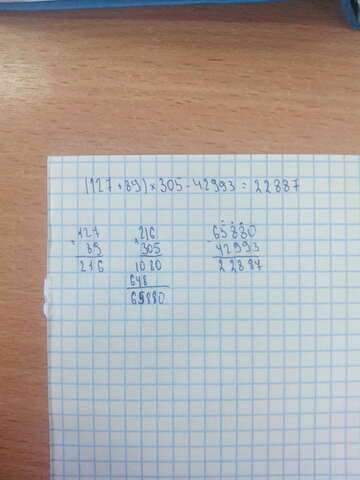 (127 + 89) × 305 - 42993 = 22887
127
+ 89
216
216
× 305
1080
648
65880
65880
- 42993
22887